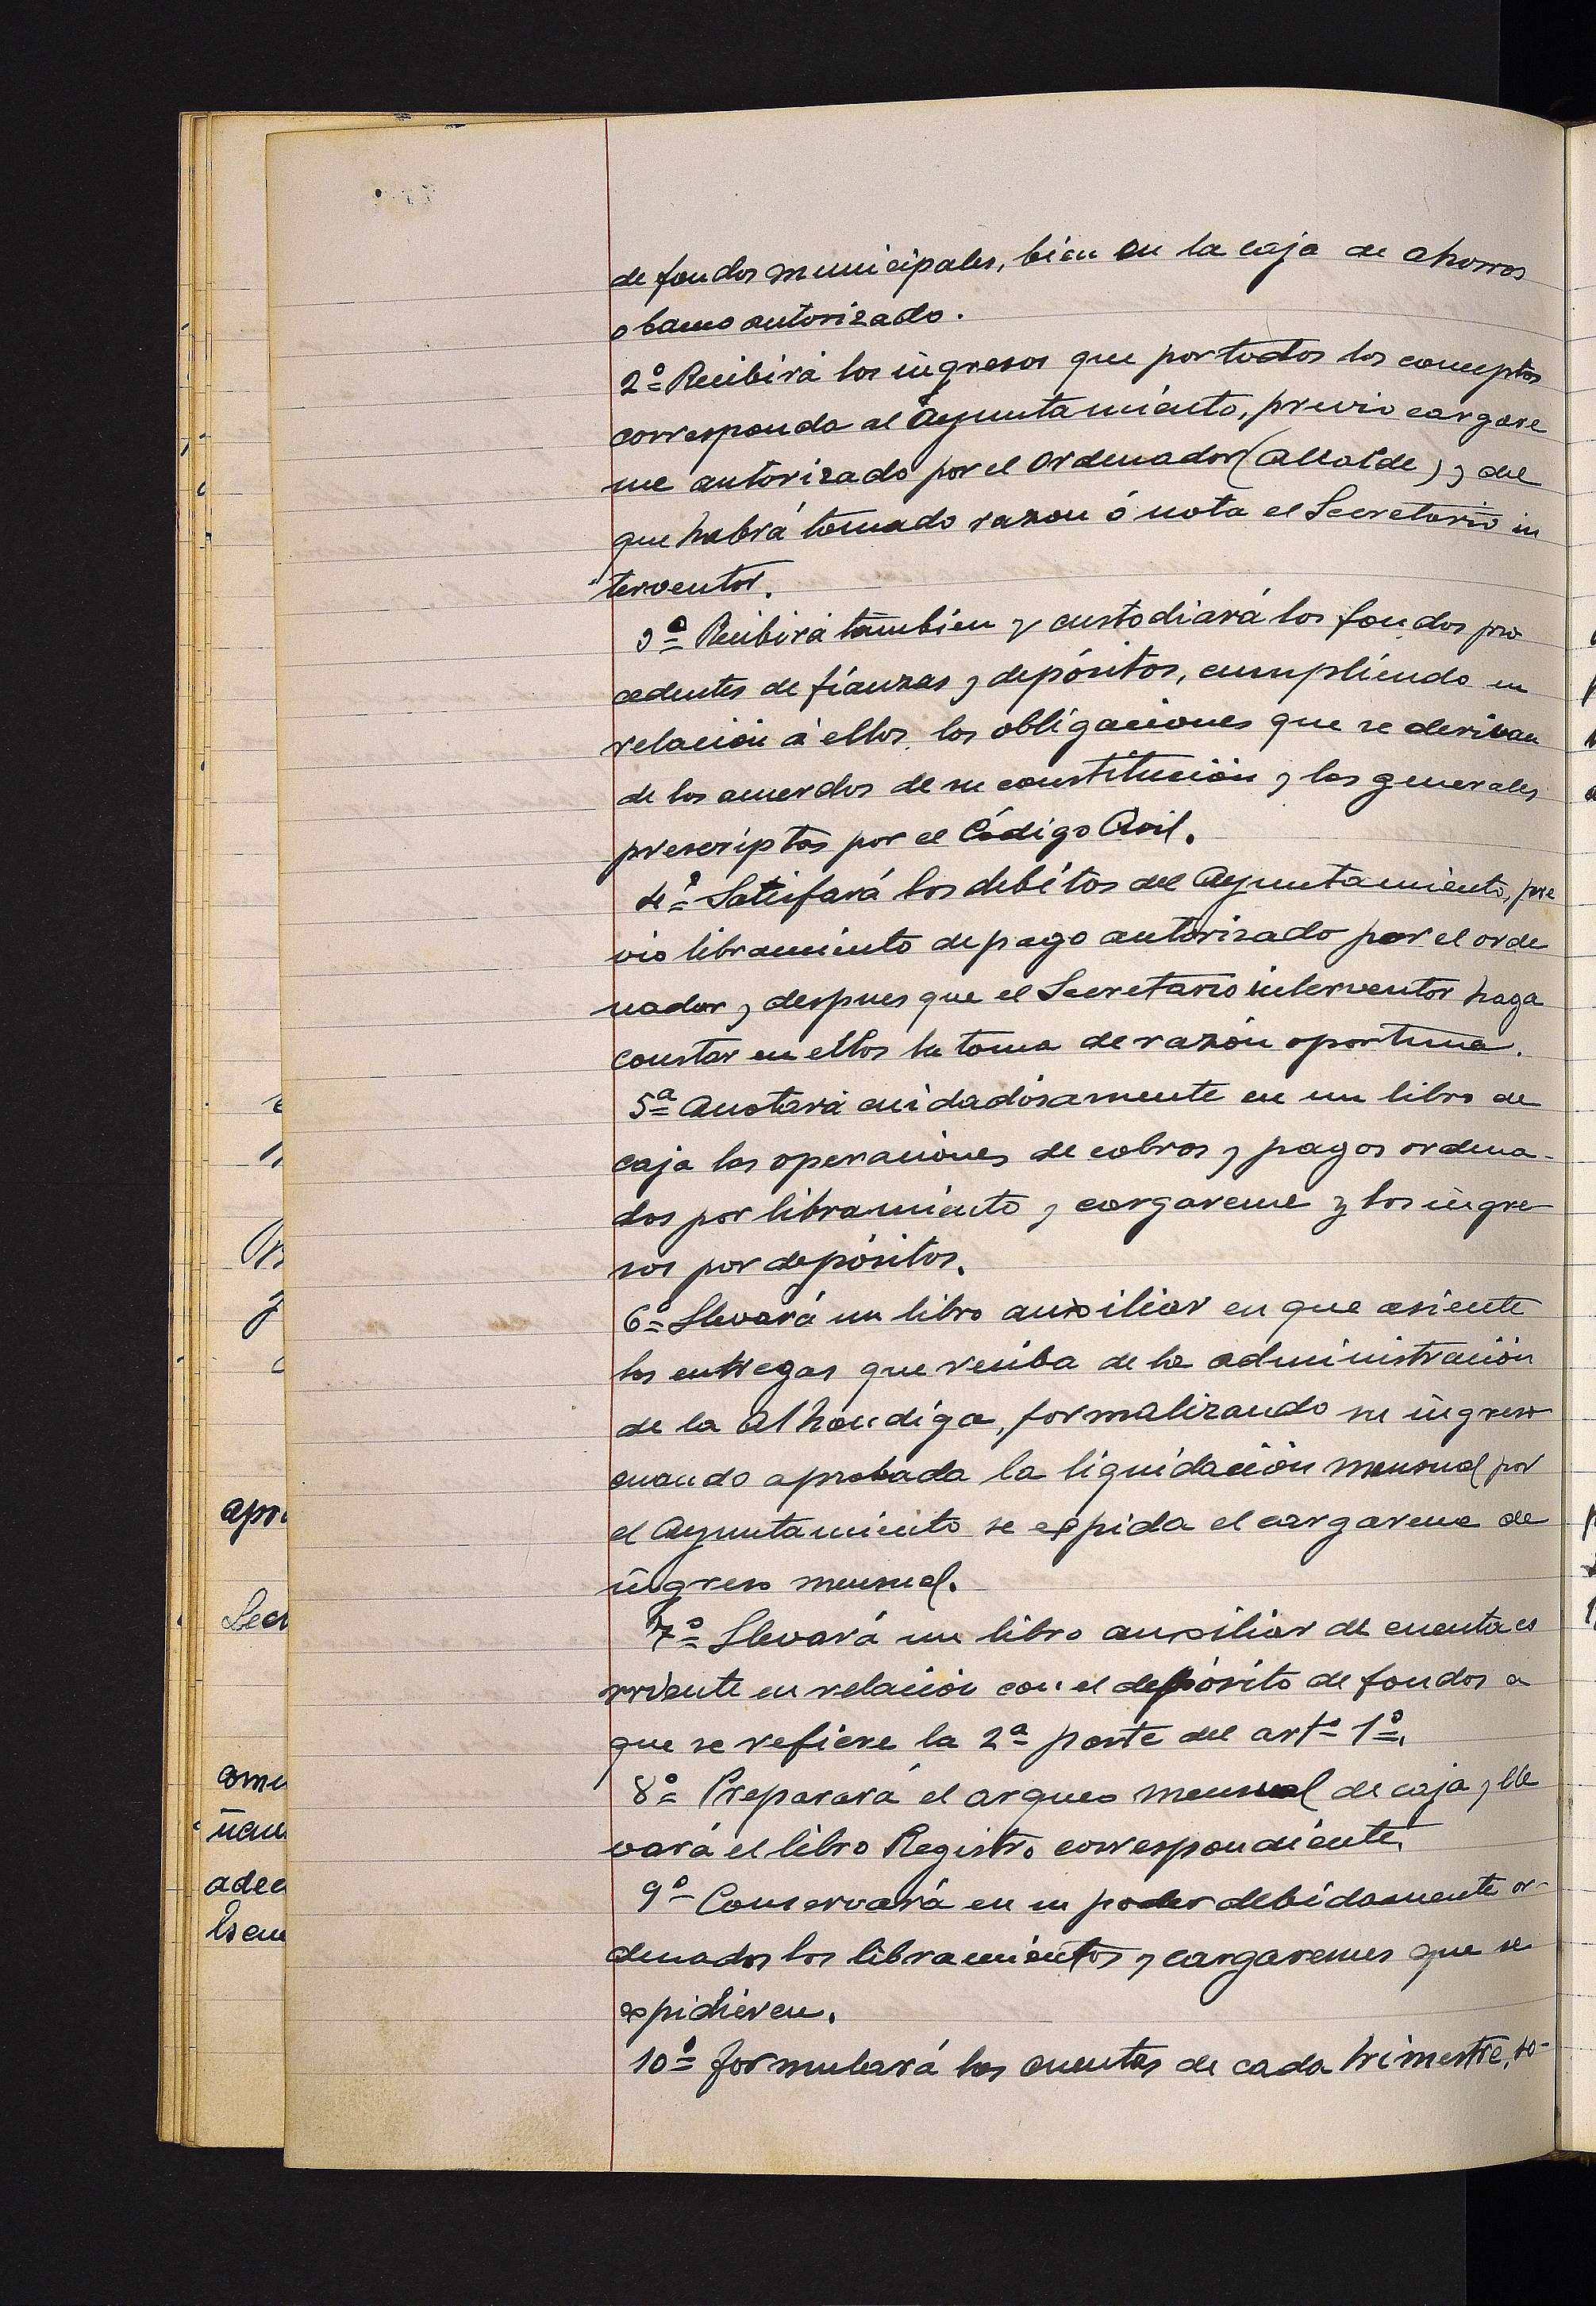 de fondos municipales, bien en la caja de ahorros
o banco autorizado.
2º Recibirá los ingresos que por todos los conceptos
corresponda al Ayuntamiento, previo cargare
me autorizado por el Ordenador (Alcalde) y del
que habrá tomado razon ó nota el Secretario in
terventor.
3º Recibirá tambien y custodiará los fondos pro
cedentes de fianzas y depósitos, cumpliendo en
relación á ellos las obligaciones que se derivan
de los acuerdos de su constitución y las generales
prescriptas por el Código Civil.
4º Satisfará los debitos del Ayuntamiento, pre
vio libramiento de pago autorizado por el orde
nador y despues que el Secretario interventor haga
constar en ellos la toma de razón oportuna.
5ª Anotará cuidadosamente en un libro de
caja las operaciones de cobros y pagos ordena-
dos por libramiento y cargareme y los ingre
sos por depósitos.
6º Llevará un libro auxiliar en que asiente
las entregas que reciba de la administración
de la Alhondiga, formalizando su ingreso
cuando aprobada la liquidación mensual por
el Ayuntamiento se expida el cargareme de
ingreso mensual.
7º Llevará un libro auxiliar de cuenta co
rriente en relación con el depósito de fondos a
que se refiere la 2ª parte del artº 1º.
8º Preparará el arqueo mensual de caja y lle
vará el libro Registro correspondiente.
9º Conservará en su poder debidamente or-
denados los libramientos y cargaremes que se
expidieren.
10º formulará las cuentas de cada trimestre, so-
apr
Secr
come
adec